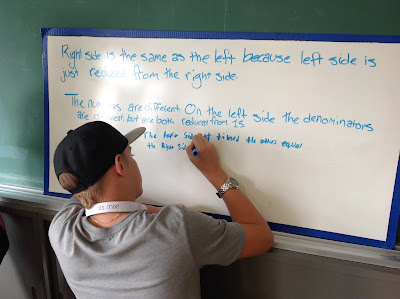 Right side is the same as the left because left side is
just reduced from the right side.
The num s are different On the left side the denominators
are different, but are both reduced from 15
The left side if timed the others equal
the Right Sid